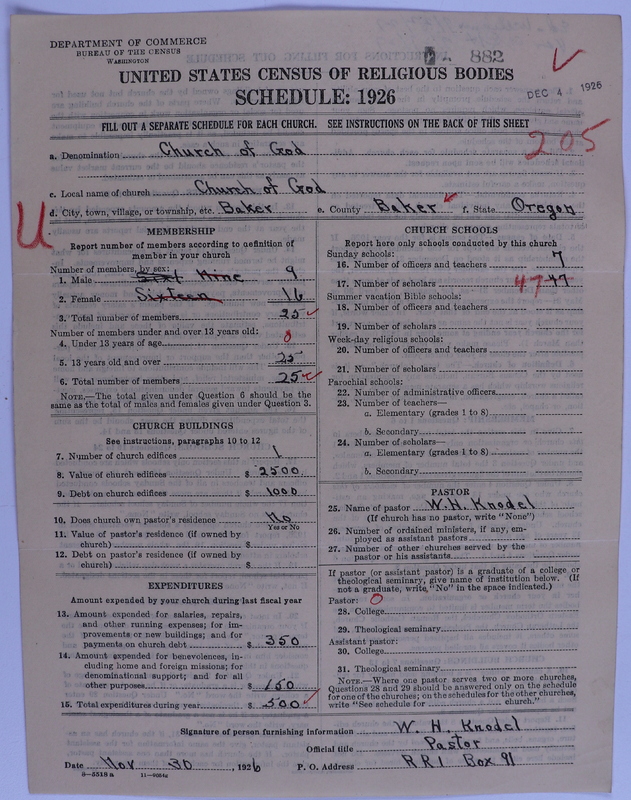 DEPARTMENT OF COMMERCE
BUREAU OF THE CENSUS
WASHINGTON
882
UNITED STATES CENSUS OF RELIGIOUS BODIES
SCHEDULE: 1926
DEC 4 1926
FILL OUT A SEPARATE SCHEDULE FOR EACH CHURCH. SEE INSTRUCTIONS ON THE BACK OF THIS SHEET
205
a. Denomination Church of God
c. Local name of church Church of God
d. City, town, village, or township, etc. Baker e. County Baker f. State Oregon
U
MEMBERSHIP
Report number of members according to definition of
member in your church
Number of members, by sex:
1. Male Nine 9
2. Female Sixteen 16
3. Total number of members 25
Number of members under and over 13 years old:
4. Under 13 years of age 0
5. 13 years old and over 25
6. Total number of members 25
NOTE.—The total given under Question 6 should be
same as the total of males and females given under Question 3.
CHURCH BUILDINGS
See instructions, paragraphs 10 to 12
7. Number of church edifices 1
8. Value of church edifices $ 2500
9. Debt on church edifices $ 1000
10. Does church own pastor's residence No
Yes or No
11. Value of pastor's residence (if owned by
church) $
12. Debt on pastor's residence (if owned by
church) $
EXPENDITURES
Amount expended by your church during last fiscal year
13. Amount expended for salaries, repairs,
and other running expenses; for im-
provements or new buildings; and for
payments on church debt $ 350
14. Amount expended for benevolences, in-
cluding home and foreign missions; for
denominational support; and for all
other purposes $ 150
15. Total expenditures during year $ 500
CHURCH SCHOOLS
Report here only schools conducted by this church
Sunday schools:
16. Number of officers and teachers 7
17. Number of scholars 47 47
Summer vacation Bible schools:
18. Number of officers and teachers
19. Number of scholars
Week-day religious schools:
20. Number of officers and teachers
21. Number of scholars
Parochial schools:
22. Number of administrative officers
23. Number of teachers—
a. Elementary (grades 1 to 8)
b. Secondary
24. Number of scholars—
a. Elementary (grades 1 to 8)
b. Secondary
PASTOR
25. Name of pastor W. H. Knodel
(If church has no pastor, write "None")
26. Number of ordained ministers, if any, em-
ployed as assistant pastors
27. Number of other churches served by the
pastor or his assistants
If pastor (or assistant pastor) is a graduate of a college or
theological seminary, give name of institution below. (If
not a graduate, write "No" in the space indicated.)
Pastor: 0
28. College
29. Theological seminary
Assistant pastor:
30. College
31. Theological seminary
NOTE.—Where one pastor serves two or more churches,
Questions 28 and 29 should be answered only on the schedule
for one of the churches; on the schedules for the other churches,
write "See schedule for church."
Signature of person furnishing information W. H. Knodel
Official title Pastor
Date Nov 30, 1926 P. O. Address RR1 Box 91
8—5518 a 11—9054